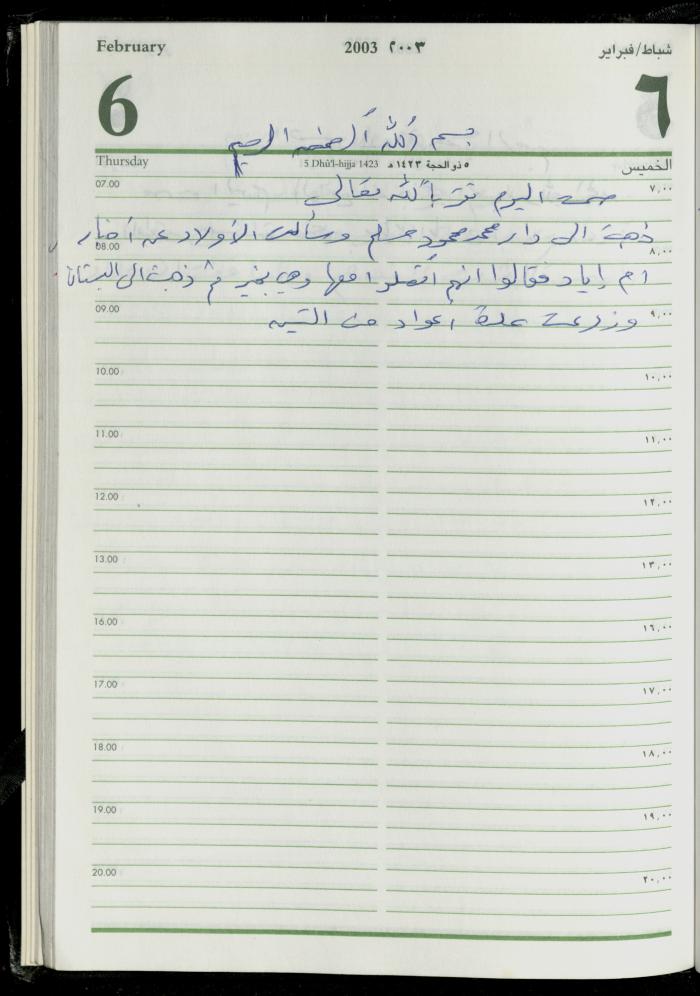 February 2003 ٢٠٠٣ شباط/فبراير
6 ٦
بسم الله الرحمن الرحيم
Thursday 5 Dhû'l-hijja 1423 ٥ ذو الحجة ١٤٢٣ هـ الخميس
07.00 ٧,٠٠
صمت اليوم قربا لله تعالى
ذهبت الى دار محمد محمود مسلم وسألت الأولاد عن أخبار
08.00 ٨,٠٠
ام إياد فقالوا انهم اتصلوا معها وهي بخير ثم ذهبت الى البستان
09.00 ٩,٠٠
وزرعت عدة أعواد من التين
10.00 ١٠,٠٠
11.00 ١١,٠٠
12.00 ١٢,٠٠
13.00 ١٣,٠٠
16.00 ١٦,٠٠
17.00 ١٧,٠٠
18.00 ١٨,٠٠
19.00 ١٩,٠٠
20.00 ٢٠,٠٠